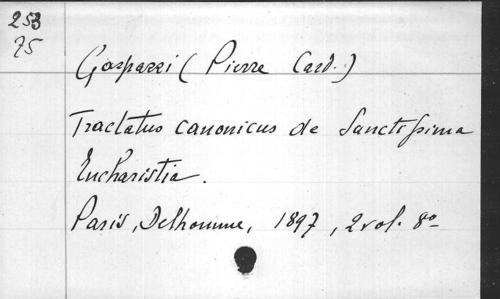 253
75
Gasparri (Pierre Card.)
Tractatus canonicus de Sanctissima
Eucharistia.
Paris, Delhomme, 1897, 2 vol. 8º